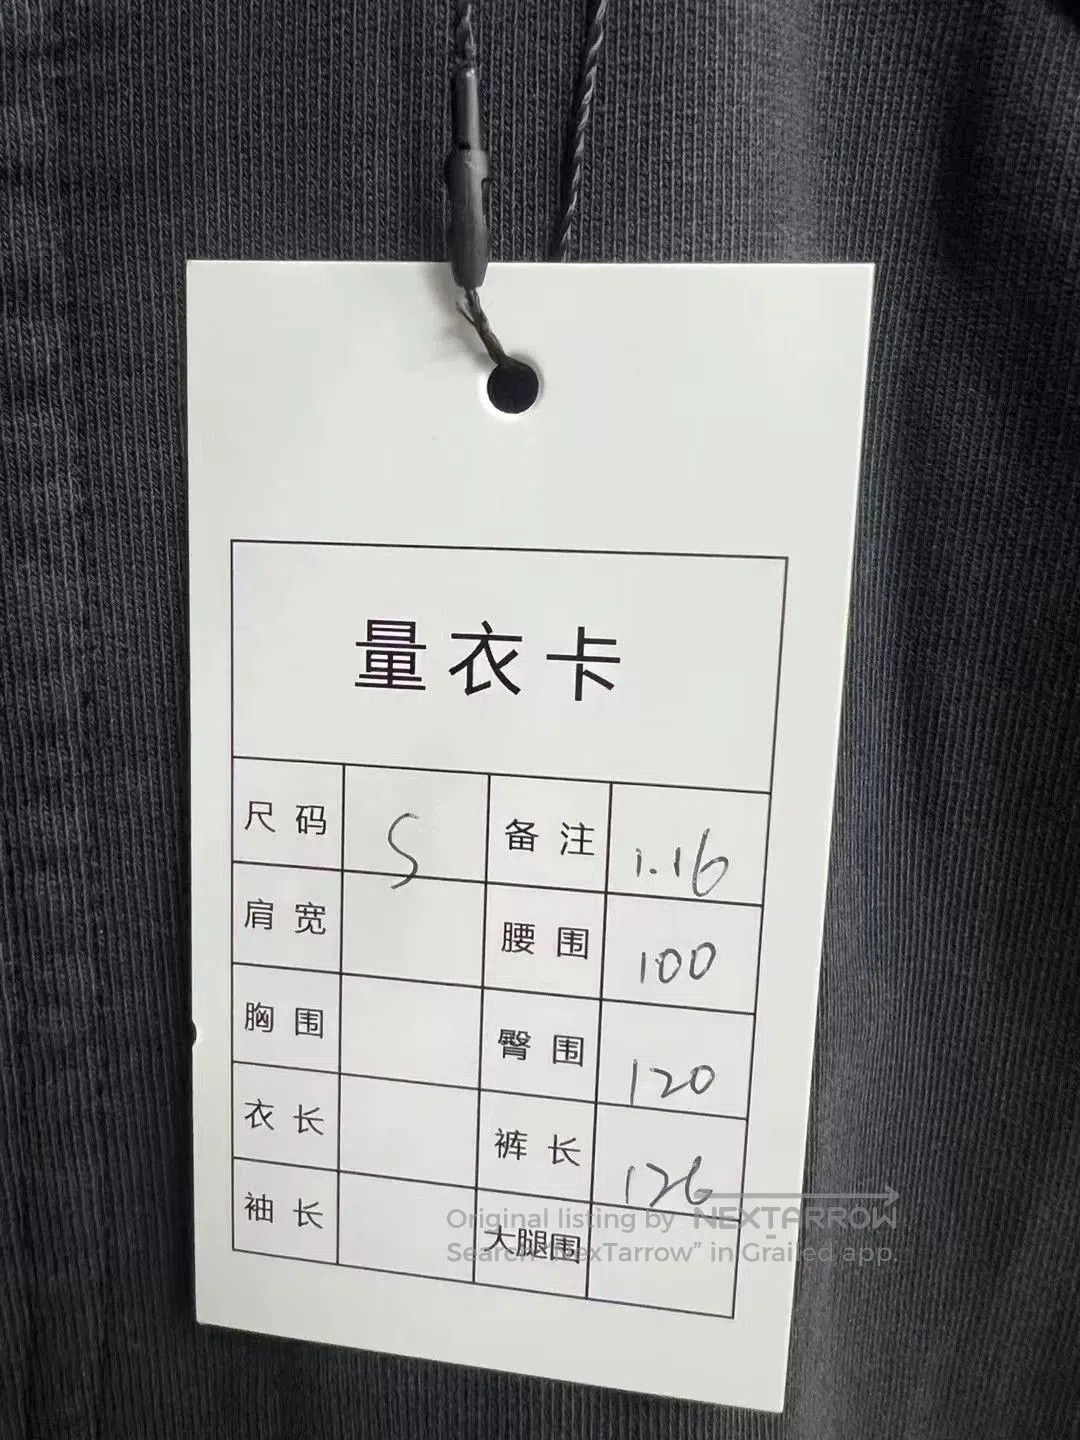 量衣卡
尺码 S 备注 1.16
肩宽 腰围 100
胸围 臀围 120
衣长 裤长 126
袖长 大腿围
Original listing by NEXTARROW
Search "NexTarrow" in Grailed app.